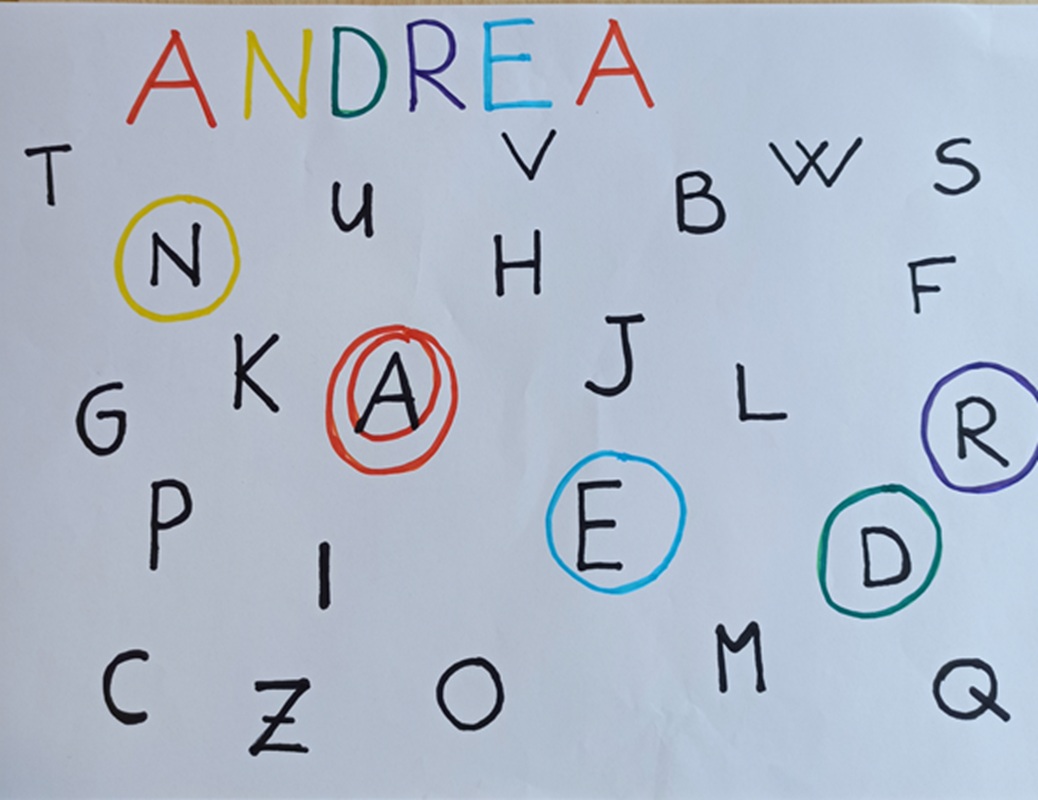 ANDREA
T U V B W S
N H F
K A J L R
G
P E D
I
C Z O M Q